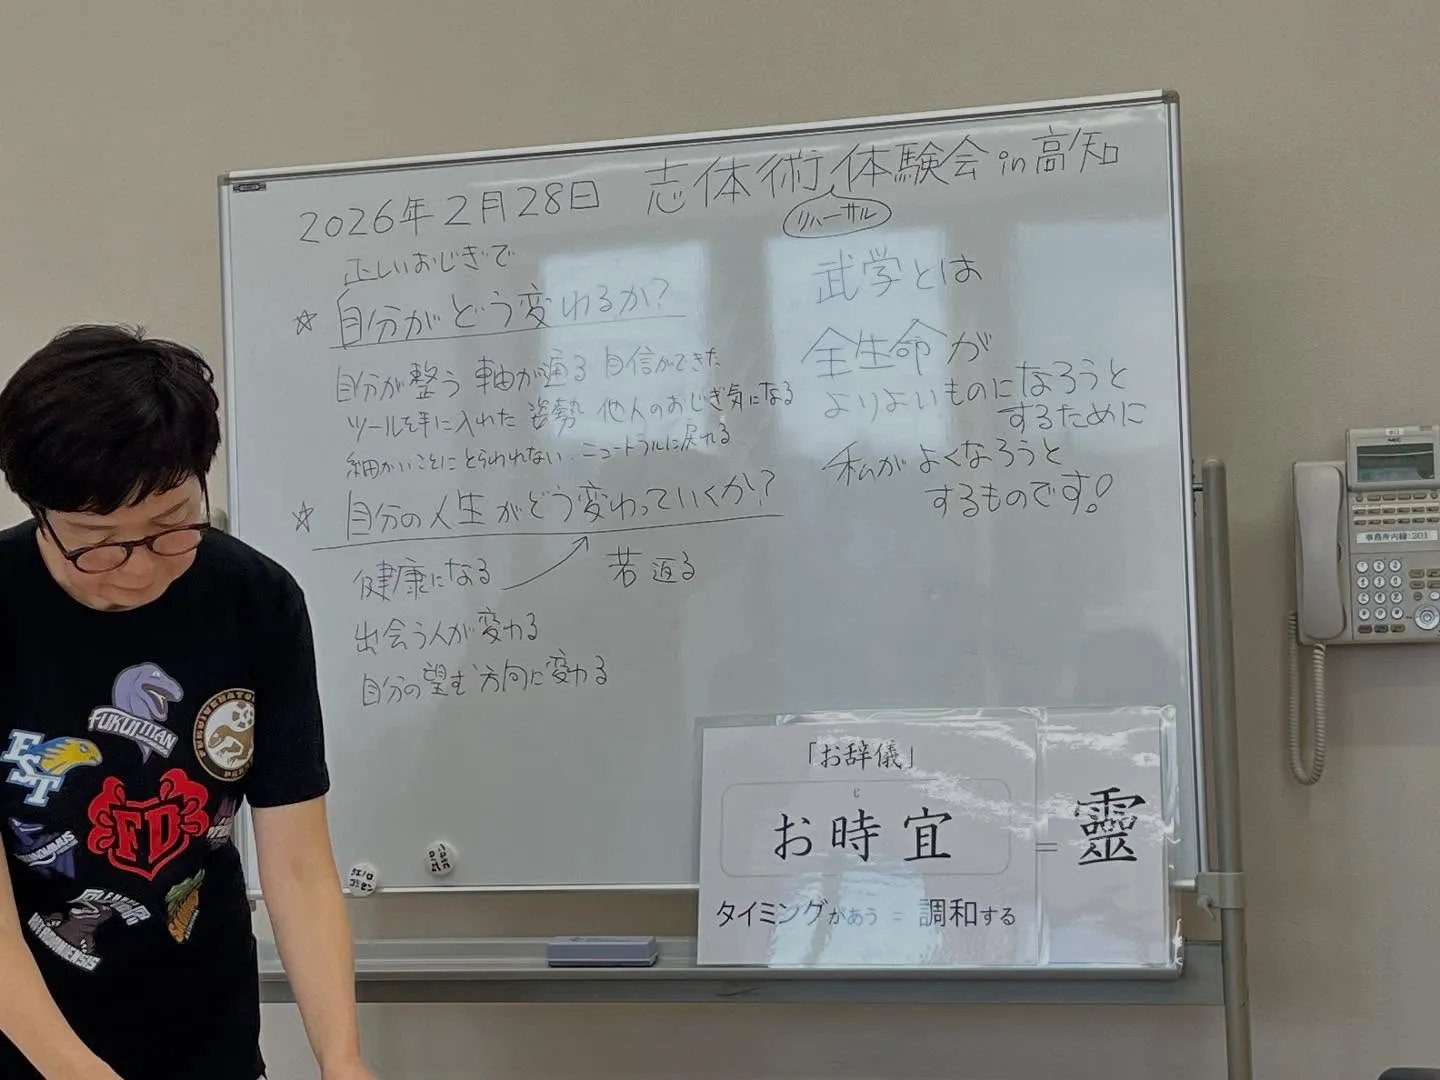 2026年2月28日 志体術体験会in高知
リハーサル
正しいおじぎで
☆ 自分がどう変わるか?
自分が整う 軸が通る 自信ができた
ツールを手に入れた 姿勢 他人のおじぎ気になる
細かいことにとらわれない ニュートラルに戻れる
☆ 自分の人生がどう変わっていくか?
健康になる 若返る
出会う人が変わる
自分の望む方向に変わる
武学とは
全生命が
よりよいものになろうと
するために
私がよくなろうと
するものです!
「お辞儀」
じ
お時宜 = 靈
タイミングがあう = 調和する
FUKUITITAN
FST
FD
NEC
事務所内線:201